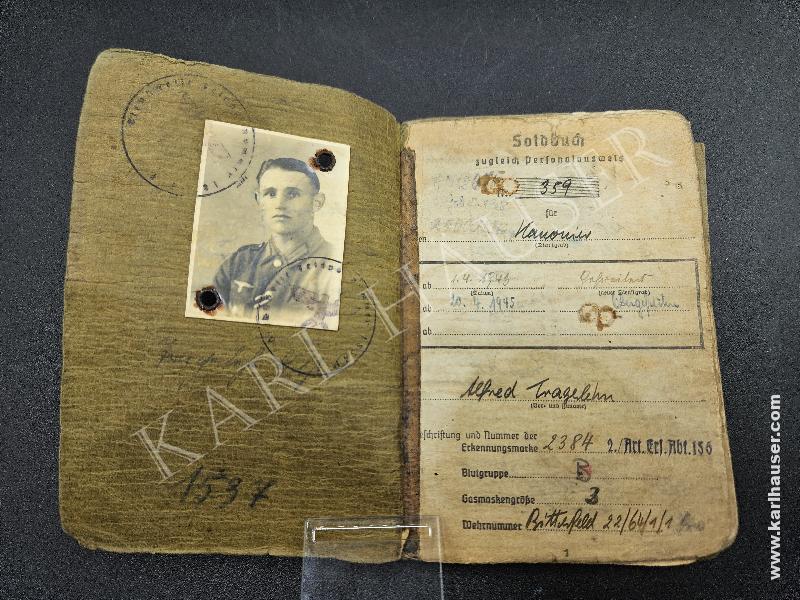 1597
Soldbuch
zugleich Personalausweis
Nr. 359
für
Kanonier
(Dienstgrad)
ab 1.4.1943 Gefreiter
(Datum) (neuer Dienstgrad)
ab 20.4.1945
ab
Alfred Tragelehn
(Vor- und Zuname)
Beschriftung und Nummer der
Erkennungsmarke 2384 2./Art.Ers.Abt.156
Blutgruppe B
Gasmaskengröße 3
Wehrnummer Bitterfeld 22/64/1/1
1
KARL HAUSER
www.karlhauser.com